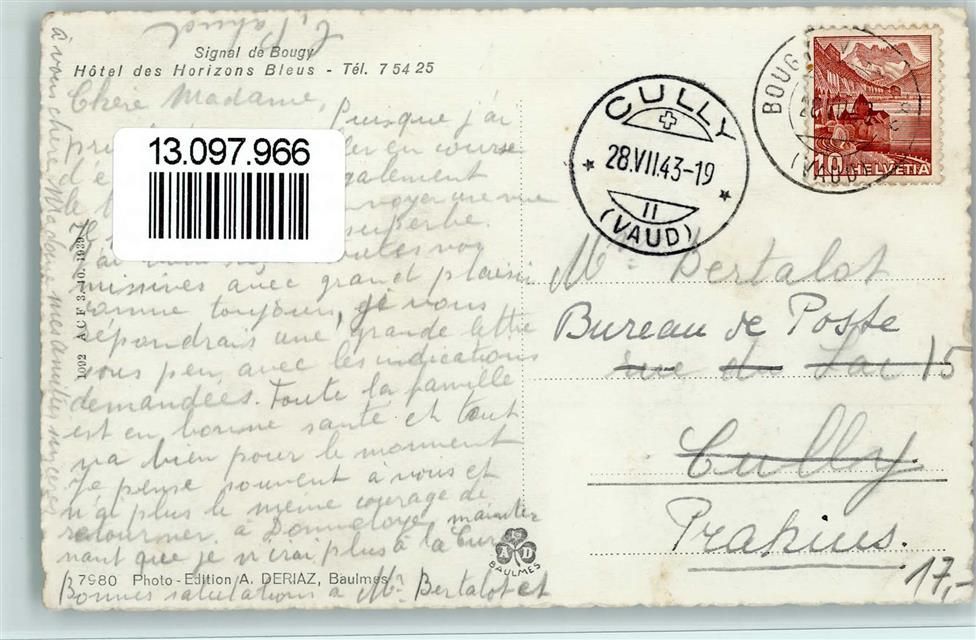 Signal de Bougy
Hôtel des Horizons Bleus - Tél. 7 54 25
Chère Madame,
Puisque j'ai
en course
d'é également
envoyer une vue
superbe.
J'ai toutes vos
missives avec grand plaisir
comme toujours, je vous
répondrais une grande lettre
sous peu, avec les indications
demandées. Toute la famille
est en bonne santé et tout
va bien pour le momment
Je pense souvent à vous et
n'ai plus le même courage de
retourner à Donneloye mainte
nant que je n'irai plus à la Cure
Bonnes salutations à Mr Bertalot et
à vous chère Madame mes amitiés sincères
13.097.966
1092 A C F 3. 10. 1939
7980 Photo-Edition A. DERIAZ, Baulmes
A D
BAULMES
CULLY
28.VII.43-19
II
(VAUD)
BOUG
(VAUD)
10 HELVETIA
Mme Bertalot
Bureau de Poste
rue du Lac 15
Cully
Prahins.
17,-